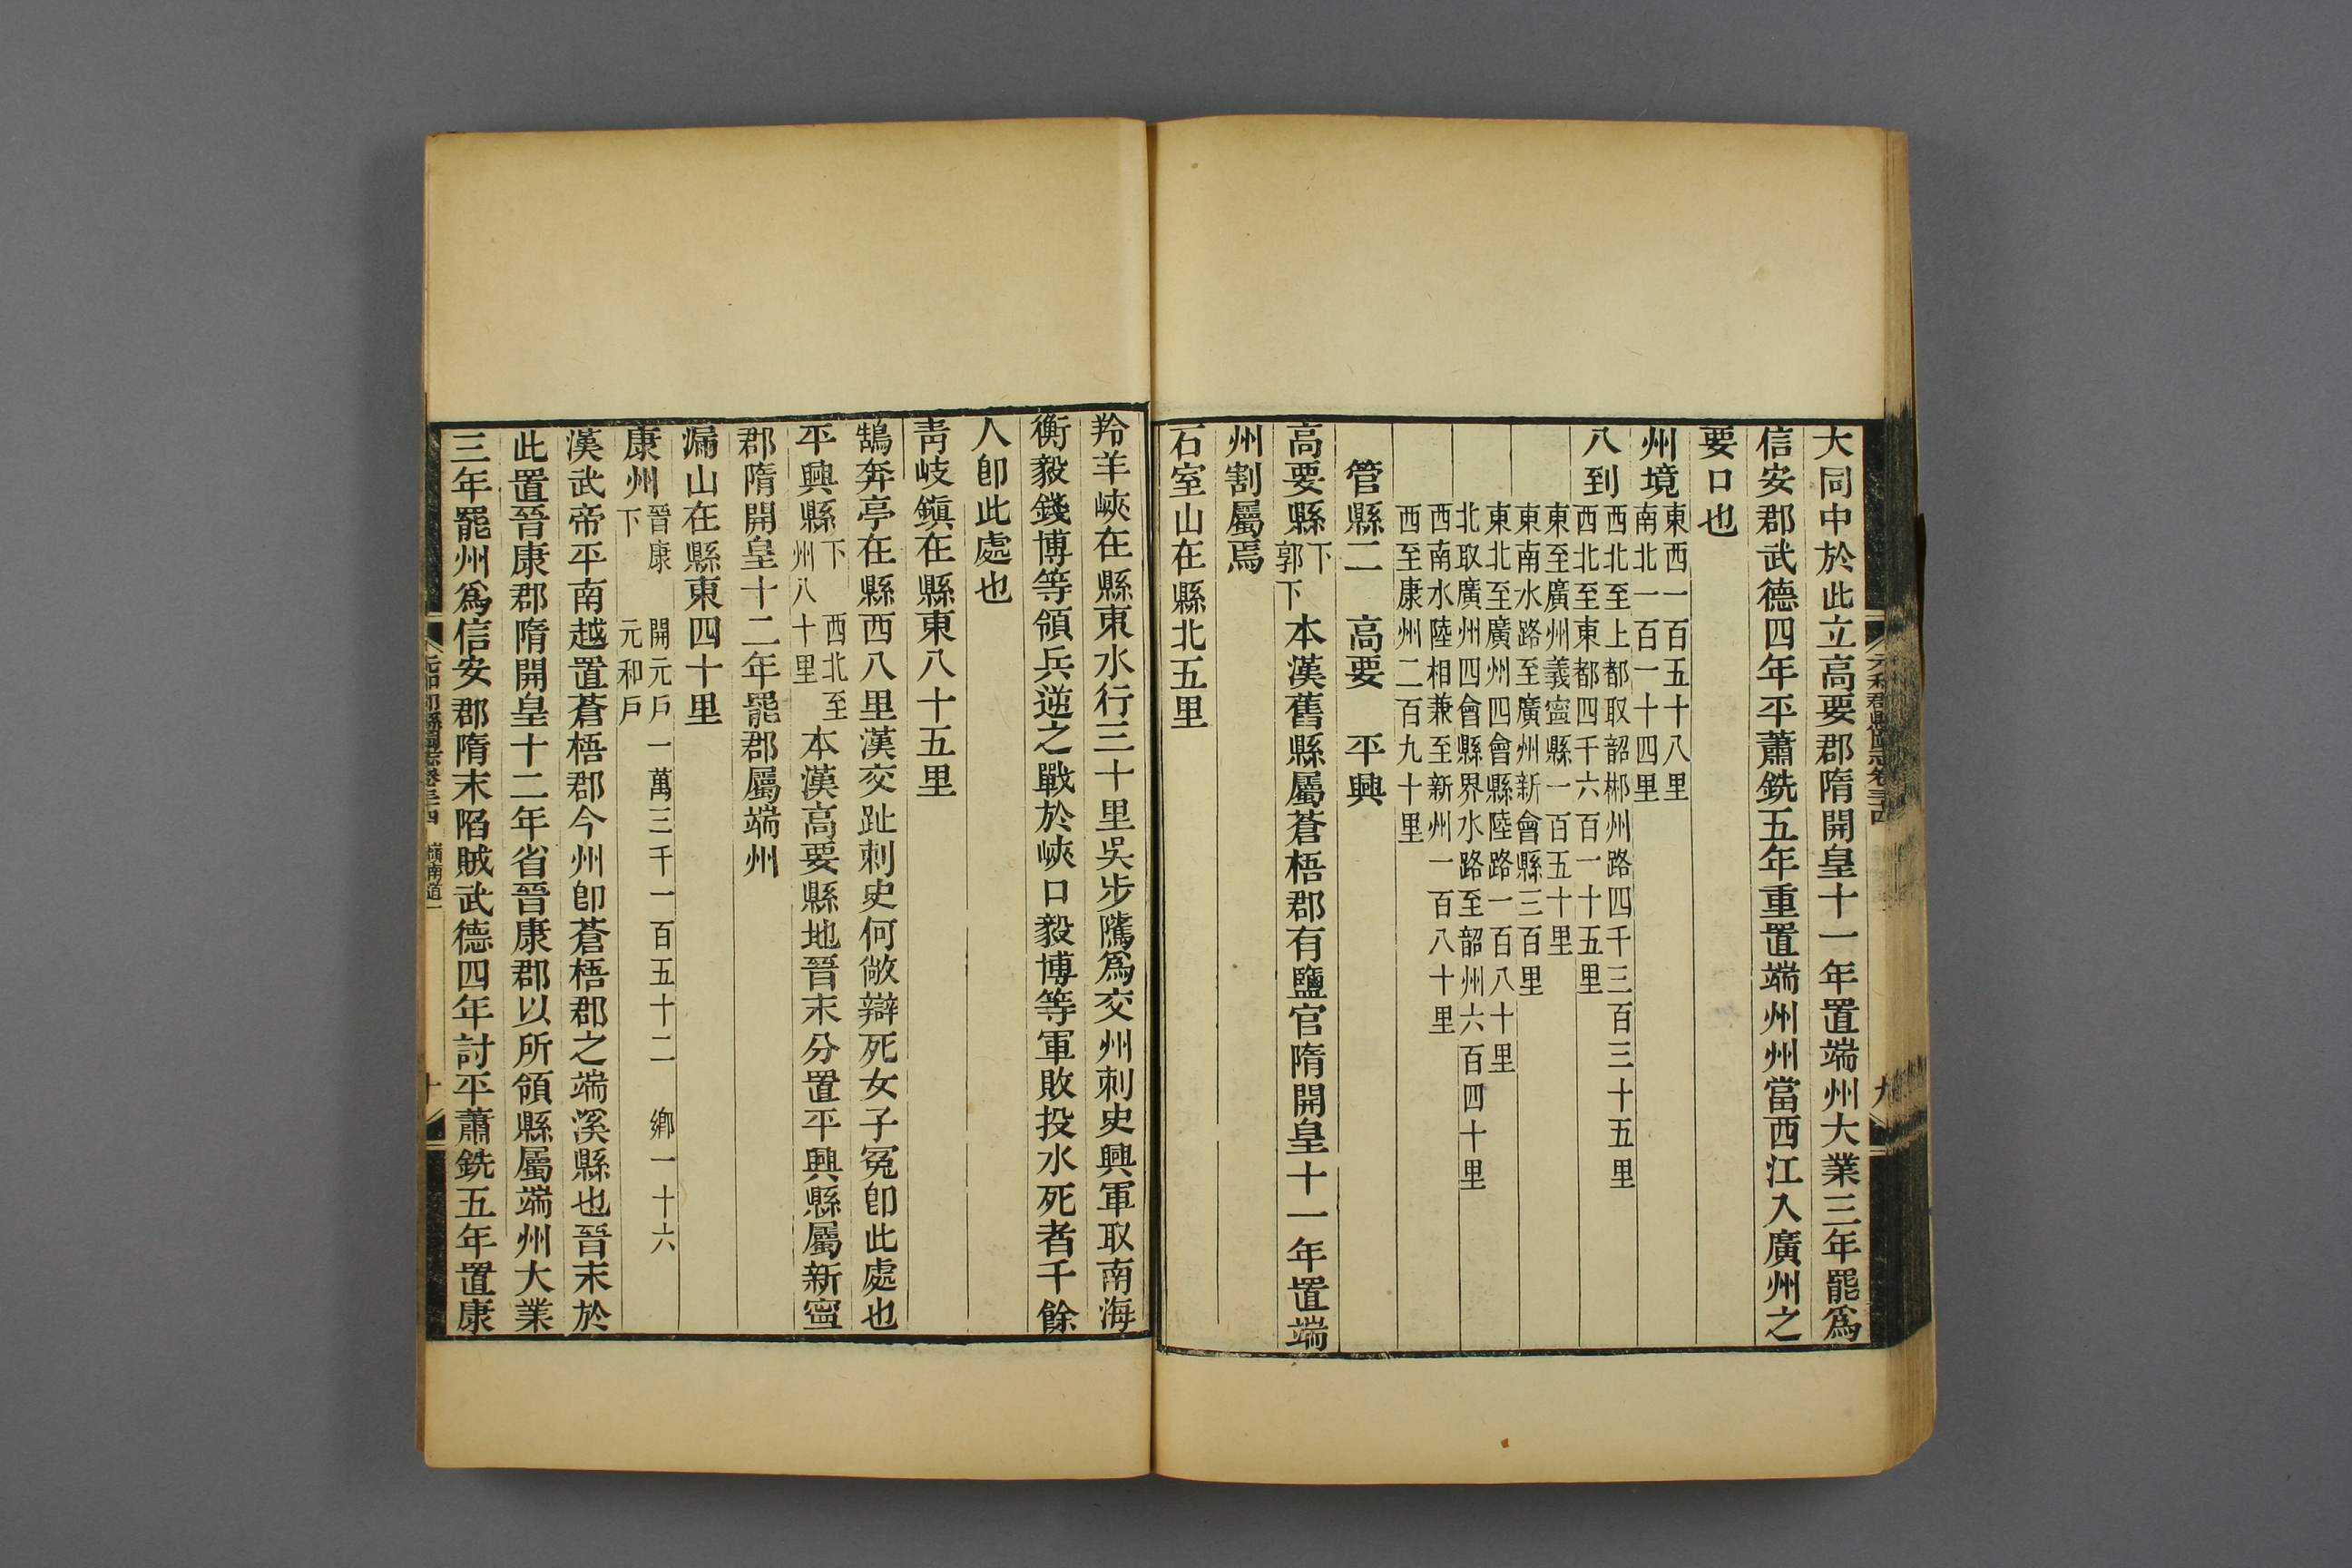 大同中於此立高要郡隋開皇十一年置端州大業三年罷爲
信安郡武德四年平蕭銑五年重置端州州當西江入廣州之
要口也
州境東西一百五十八里
南北一百一十四里
八到西北至上都取韶郴州路四千三百三十五里
西北至東都四千六百一十五里
東至廣州義寧縣一百五十里
東南水路至廣州新會縣三百里
東北至廣州四會縣陸路一百八十里
北取廣州四會縣界水路至韶州六百四十里
西南水陸相兼至新州一百八十里
西至康州二百九十里
管縣二　高要　平興
高要縣下
郭下
本漢舊縣屬蒼梧郡有鹽官隋開皇十一年置端
州割屬焉
石室山在縣北五里
羚羊峽在縣東水行三十里吳步隲爲交州刺史興軍取南海
衡毅錢博等領兵逆之戰於峽口毅博等軍敗投水死者千餘
人卽此處也
靑岐鎭在縣東八十五里
鵠奔亭在縣西八里漢交趾刺史何敞辯死女子冤卽此處也
平興縣下　西北至
州八十里
本漢高要縣地晉末分置平興縣屬新寧
郡隋開皇十二年罷郡屬端州
漏山在縣東四十里
康州晉康　開元戶一萬三千一百五十二　鄉一十六
下　元和戶
漢武帝平南越置蒼梧郡今州卽蒼梧郡之端溪縣也晉末於
此置晉康郡隋開皇十二年省晉康郡以所領縣屬端州大業
三年罷州爲信安郡隋末陷賊武德四年討平蕭銑五年置康
元和郡縣圖志卷三十四　嶺南道一　十